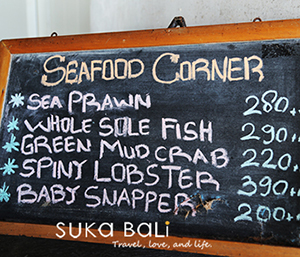 SEAFOOD CORNER
SEA PRAWN 280.+
WHOLE SOLE FISH 290++
GREEN MUD CRAB 220++
SPINY LOBSTER 390++
BABY SNAPPER 200++
SUKA BALi
Travel, love, and life.